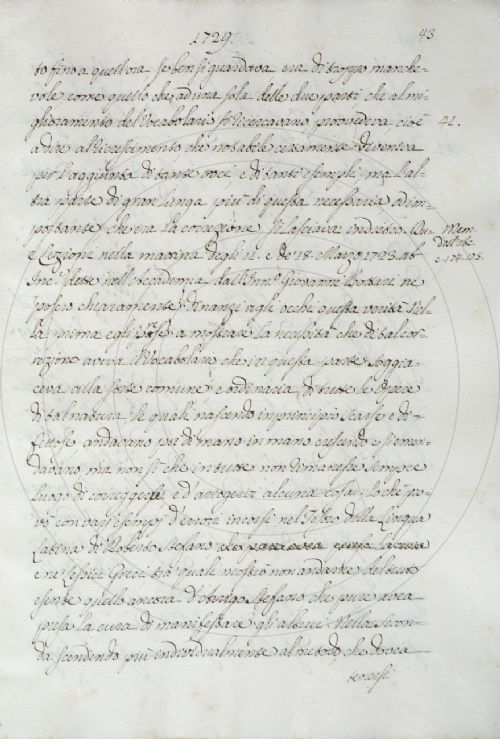 1729.
43
to fino a quell'ora se ben si guardava era di troppo manche-
vole come quello che ad una sola delle due parti che al mi-
glioramento del Vocabolario si ricercavano provvedeva, cioè
41.
a dire all'accrescimento che notabile certamente diveniva
per l'aggiunta di tante voci e di tanti esempli; ma l'al-
tra parte di gran lunga più di questa necessaria ed im-
portante che era la correzione si lasciava indietro. Du-
Mem.
e Lezione nella mattina degli 11. e de 18. Marzo 1703. ab
c. 174. 175.
Inc. dette nell'Accademia dall' Giovanni Bottari ne
posero chiaramente dinanzi agli occhi questa verità. Nel-
la prima egli prese a mostrare la necessità che di tal cor-
rezione aveva il Vocabolario che in questa parte soggia-
ceva alla sorte comune e ordinaria di tutte le Opere
di tal natura le quali nascendo in principio scarse e di-
fettose andavano poi di mano in mano crescendo e si emen-
davano ma non sì che in tutte non rimanesse sempre
luogo di correggerle e d'arrogervi alcuna cosa. Lo che pro-
vò con varj esempj d'errori incorsi nel Tesoro della Lingua
Latina di Roberto Stefano
e ne Lessici Greci tra quali mostrò non andarne del tutto
esente quello ancora d'Arrigo Stefano che pure avea
presa la cura di manifestare gli altrui. Nella secon-
da scendendo più individualmente al metodo che dovea
tenersi